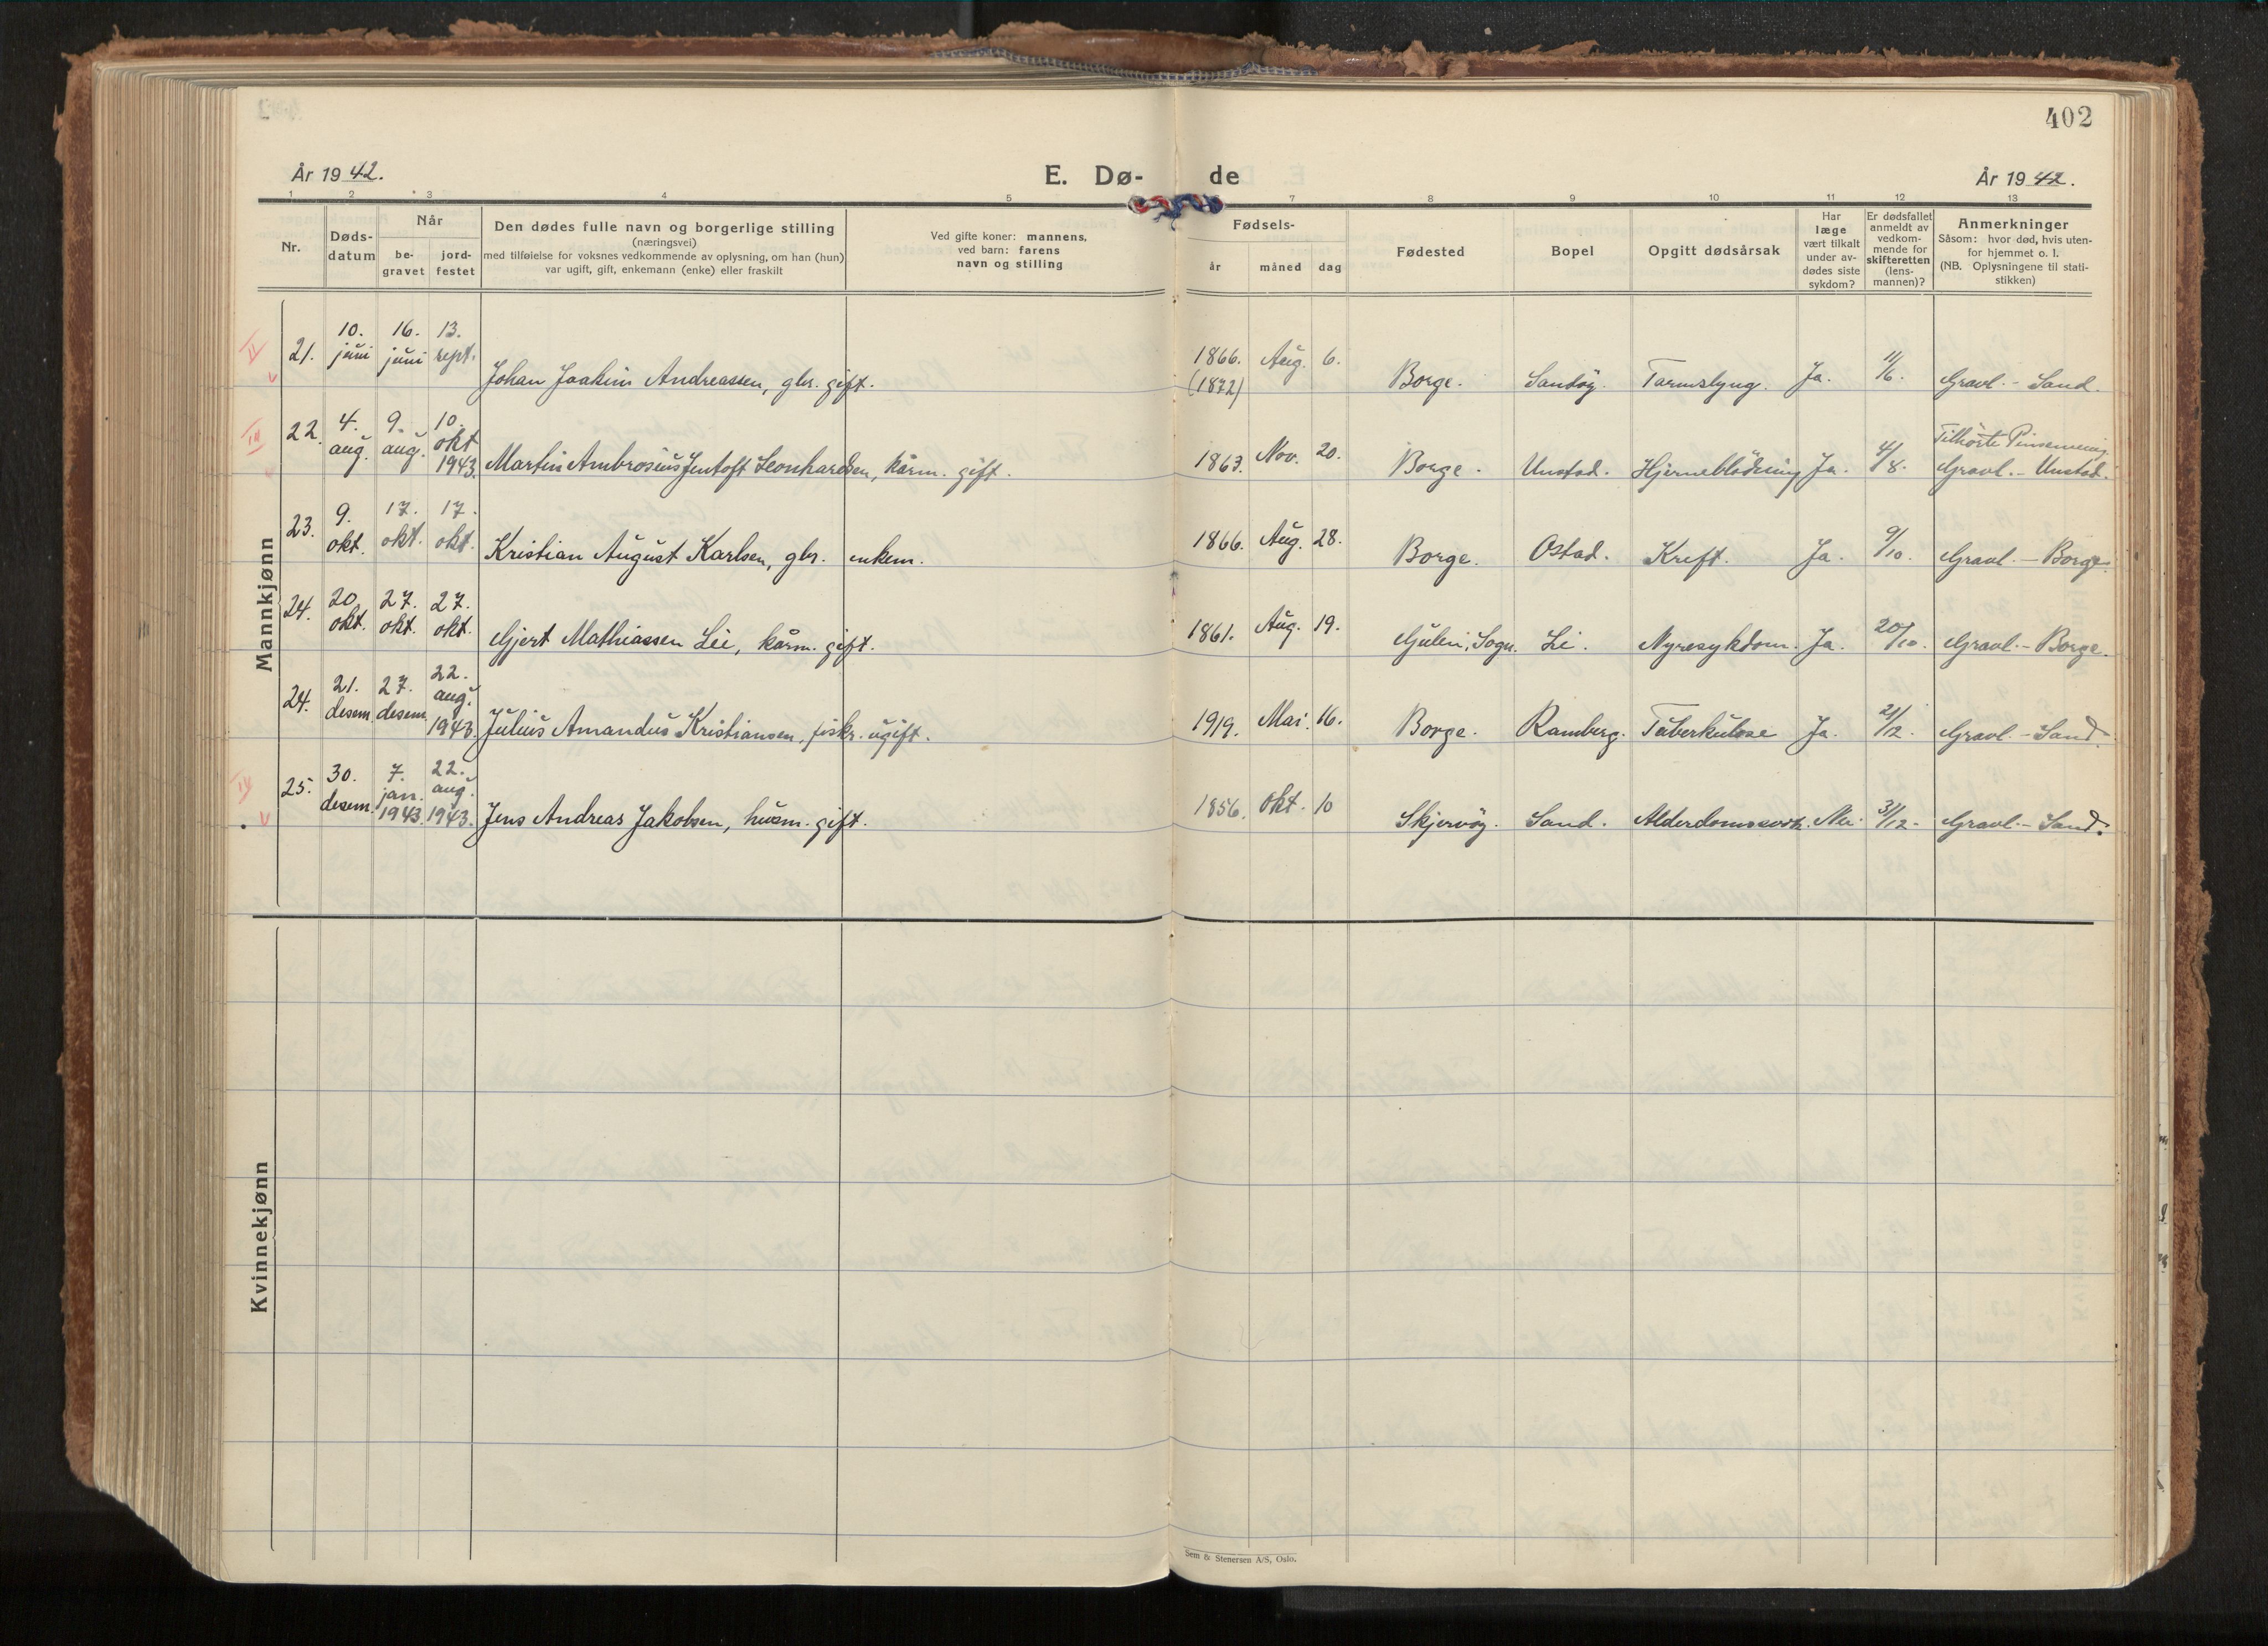 402
År 1942.
E. Dø- de
År 1942.
1 2 3 4 5 7 8 9 10 11 12 13
Nr.
Døds-
datum
Når
be-
gravet
jord-
festet
Den dødes fulle navn og borgerlige stilling
(næringsvei)
med tilføielse for voksnes vedkommende av oplysning, om han (hun)
var ugift, gift, enkemann (enke) eller fraskilt
Ved gifte koner: mannens,
ved barn: farens
navn og stilling
Fødsels-
år måned dag
Fødested
Bopel
Opgitt dødsårsak
Har
læge
vært tilkalt
under av-
dødes siste
sykdom?
Er dødsfallet
anmeldt av
vedkom-
mende for
skifteretten
(lens-
mannen)?
Anmerkninger
Såsom: hvor død, hvis uten-
for hjemmet o. l.
(NB. Oplysningene til stati-
stikken)
Mannkjønn
21. 10. juni 16. juni 13. sept. Johan Joakim Andreassen, gbr. gift. 1866. (1872) Aug. 6. Borge. Sandøy. Tarmslyng. Ja. 11/6. Gravl. - Sand.
22. 4. aug. 9. aug. 10. okt 1943. Martin Ambrosius Jentoft Leonhardsen, kårm. gift. 1863. Nov. 20. Borge. Unstad. Hjerneblødning Ja. 4/8. Tilhørte Pinsemenig. Gravl. - Unstad.
23. 9. okt. 17. okt. 17. okt. Kristian August Karlsen, gbr. enkem. 1866. Aug. 28. Borge. Ostad. Kreft. Ja. 9/10. Gravl. - Borge.
24. 20. okt. 27. okt. 27. okt. Gjert Mathiassen Lie, kårm. gift. 1861. Aug. 19. Gulen, Sogn. Li. Nyresykdom. Ja. 20/10. Gravl. - Borge.
24. 21. desem. 27. desem. 22. aug. 1943. Julius Amandus Kristiansen, fiskr. ugift. 1919. Mai. 16. Borge. Ramberg. Tuberkulose Ja. 21/12. Gravl. - Sand.
25. 30. desem. 7. jan. 1943. 22. aug. 1943. Jens Andreas Jakobsen, husm. gift. 1856. Okt. 10 Skjervøy. Sand. Alderdomssvk. Nei. 31/12. Gravl. - Sand.
Kvinnekjønn
Sem & Stenersen A/S, Oslo.